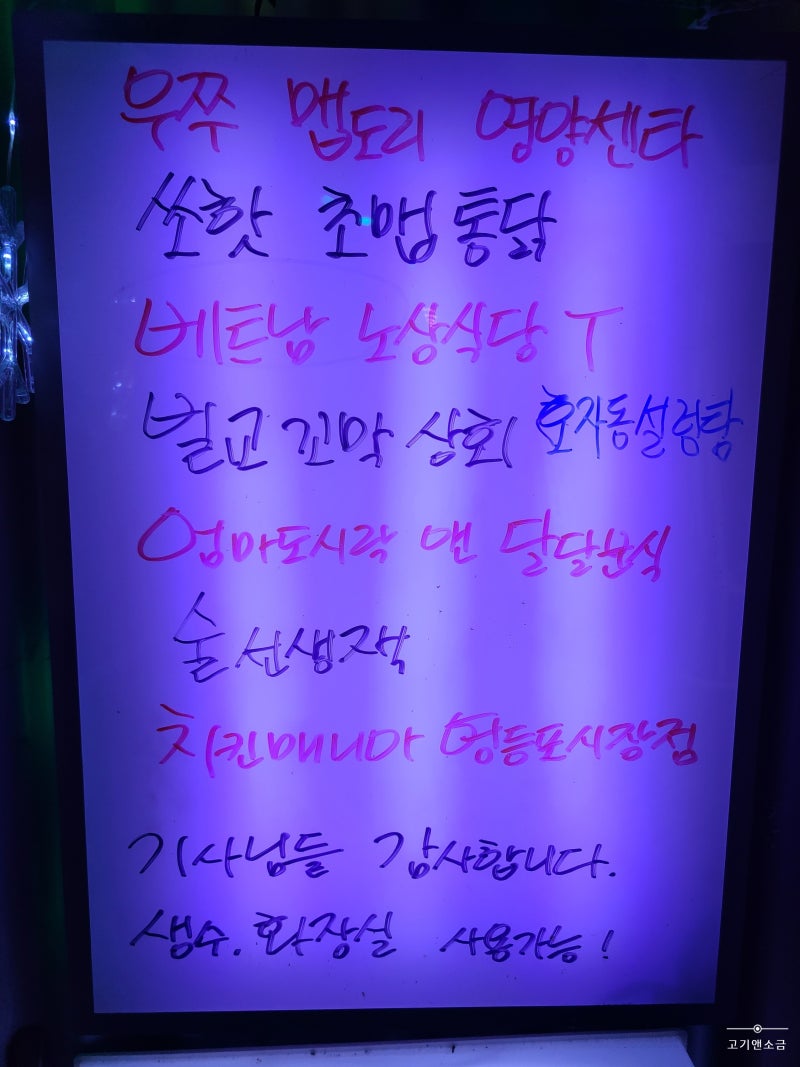 우쭈 맵도리 영양센타
쏘핫 초맵통닭
베트남 노상식당 T
벌교 꼬막 상회 호자동설렁탕
엄마도시락 앤 달달분식
술선생잭
치킨매니아 영등포시장점
기사님들 감사합니다.
생수. 화장실 사용가능!
고기앤소금